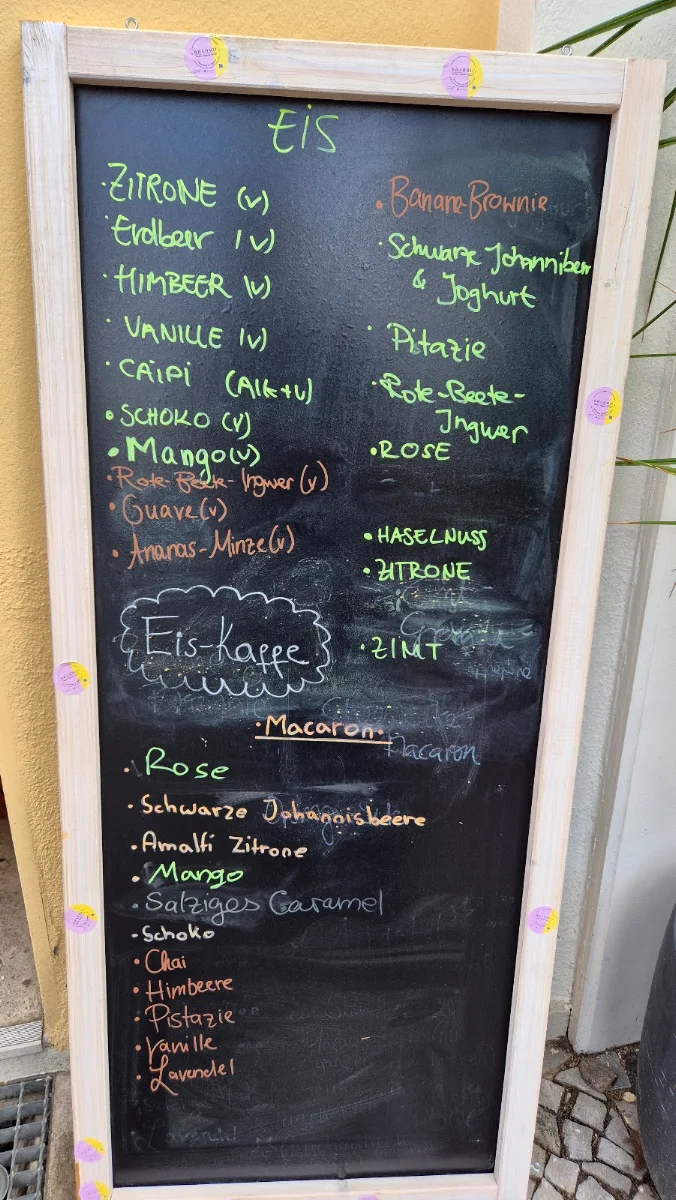 EIS
·ZITRONE (v)
·Erdbeer (v)
·HIMBEER (v)
·VANILLE (v)
·CAIPI (Alk+v)
·SCHOKO (v)
·Mango (v)
·Rote-Beete-Ingwer (v)
·Guave (v)
·Ananas-Minze (v)
Eis-Kaffe
·Banana Brownie
·Schwarze Johannibeer
& Joghurt
·Pitazie
·Rote-Beete-
Ingwer
·ROSE
·HASELNUSS
·ZITRONE
·ZIMT
·Macaron·
Macaron
·Rose
·Schwarze Johannisbeere
·Amalfi Zitrone
·Mango
·Salziges Caramel
·Schoko
·Chai
·Himbeere
·Pistazie
·Vanille
·Lavendel